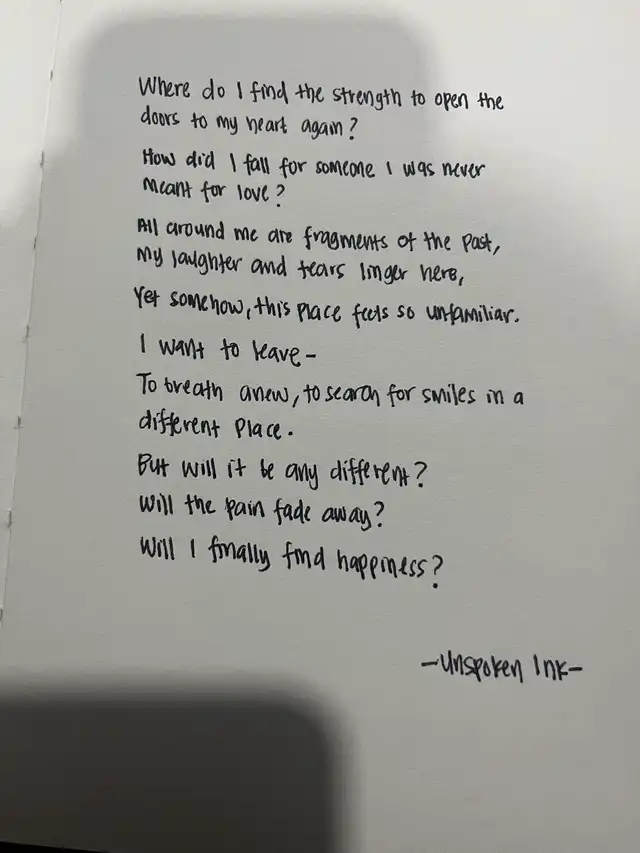 Where do I find the strength to open the
doors to my heart again?
How did I fall for someone I was never
meant for love?
All around me are fragments of the past,
My laughter and tears linger here,
Yet somehow, this place feels so unfamiliar.
I want to leave-
To breath anew, to search for smiles in a
different place.
But will it be any different?
Will the pain fade away?
Will I finally find happiness?
-Unspoken Ink-